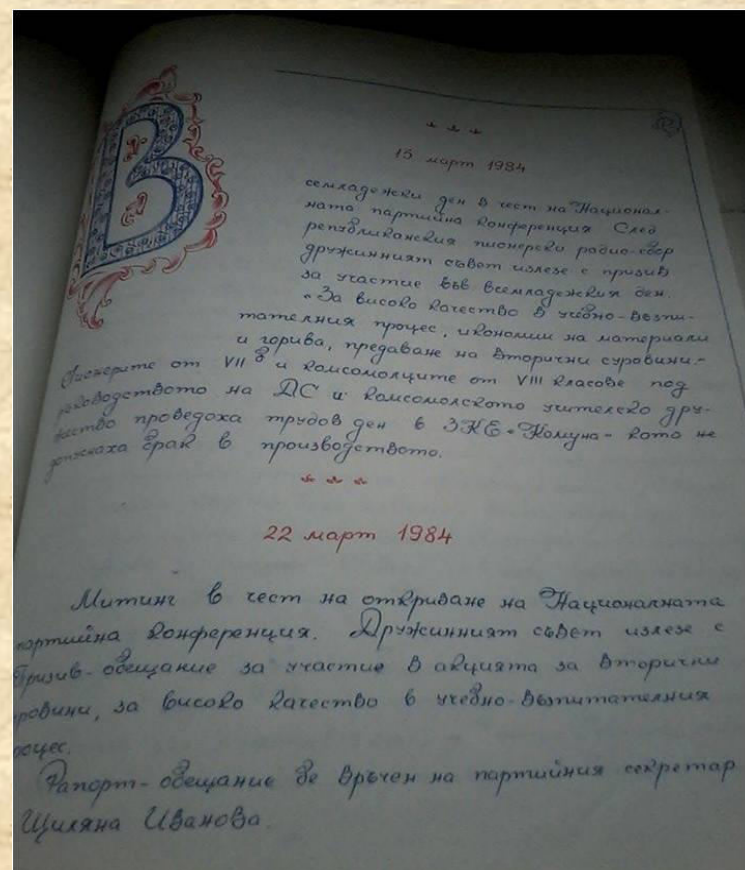 15 март 1984
Всемладежки ден в чест на Национал-
ната партийна конференция След
републиканския пионерски радио-сбор
дружинният съвет излезе с призив
за участие във всемладежкия ден.
"За високо качество в учебно-възпи-
тателния процес, икономии на материали
и горива, предаване на вторични суровини."
Пионерите от VII в и комсомолците от VIII класове под
ръководството на ДС и комсомолското учителско дру-
жество проведоха трудов ден в ЗКЕ "Комуна" като не
допуснаха брак в производството.
22 март 1984
Митинг в чест на откриване на Националната
партийна конференция. Дружинният съвет излезе с
призив-обещание за участие в акцията за вторични
суровини, за високо качество в учебно-възпитателния
процес.
Рапорт-обещание бе връчен на партийния секретар
Щиляна Иванова.